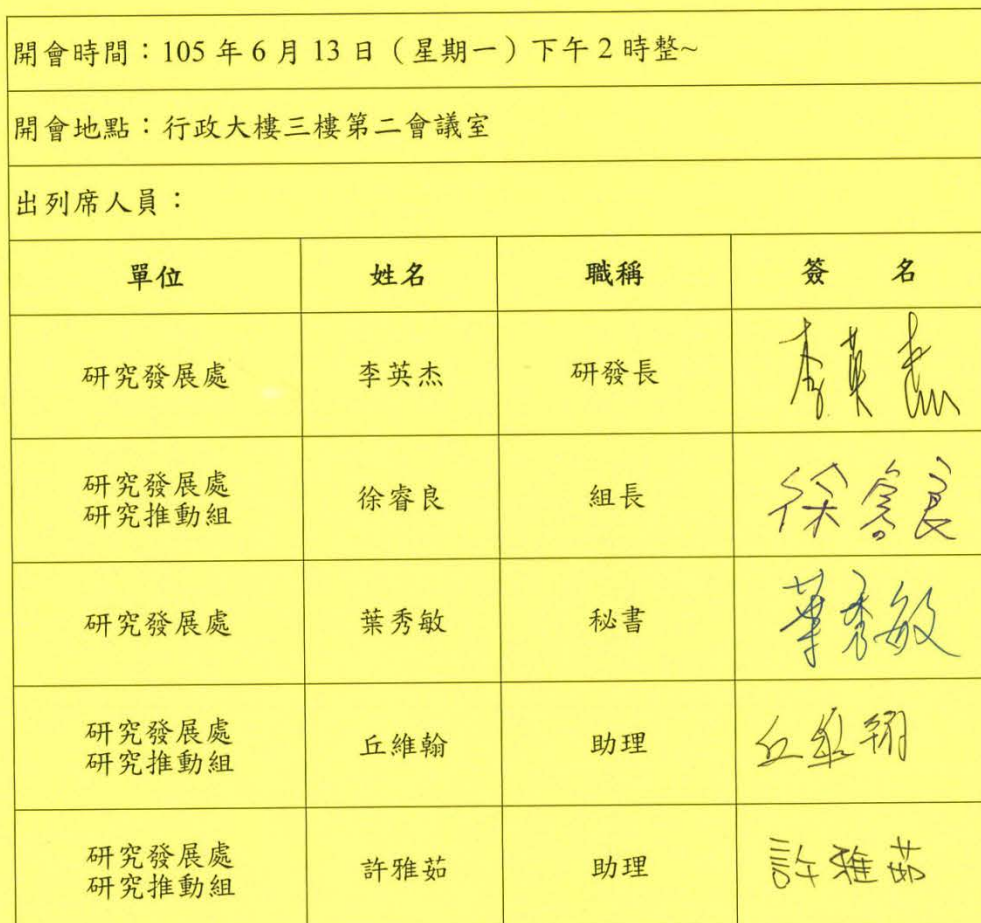 開會時間：105 年 6 月 13 日（星期一）下午 2 時整~
開會地點：行政大樓三樓第二會議室
出列席人員：
單位 姓名 職稱 簽 名
研究發展處 李英杰 研發長 李英杰
研究發展處
研究推動組 徐睿良 組長 徐睿良
研究發展處 葉秀敏 秘書 葉秀敏
研究發展處
研究推動組 丘維翰 助理 丘維翰
研究發展處
研究推動組 許雅茹 助理 許雅茹